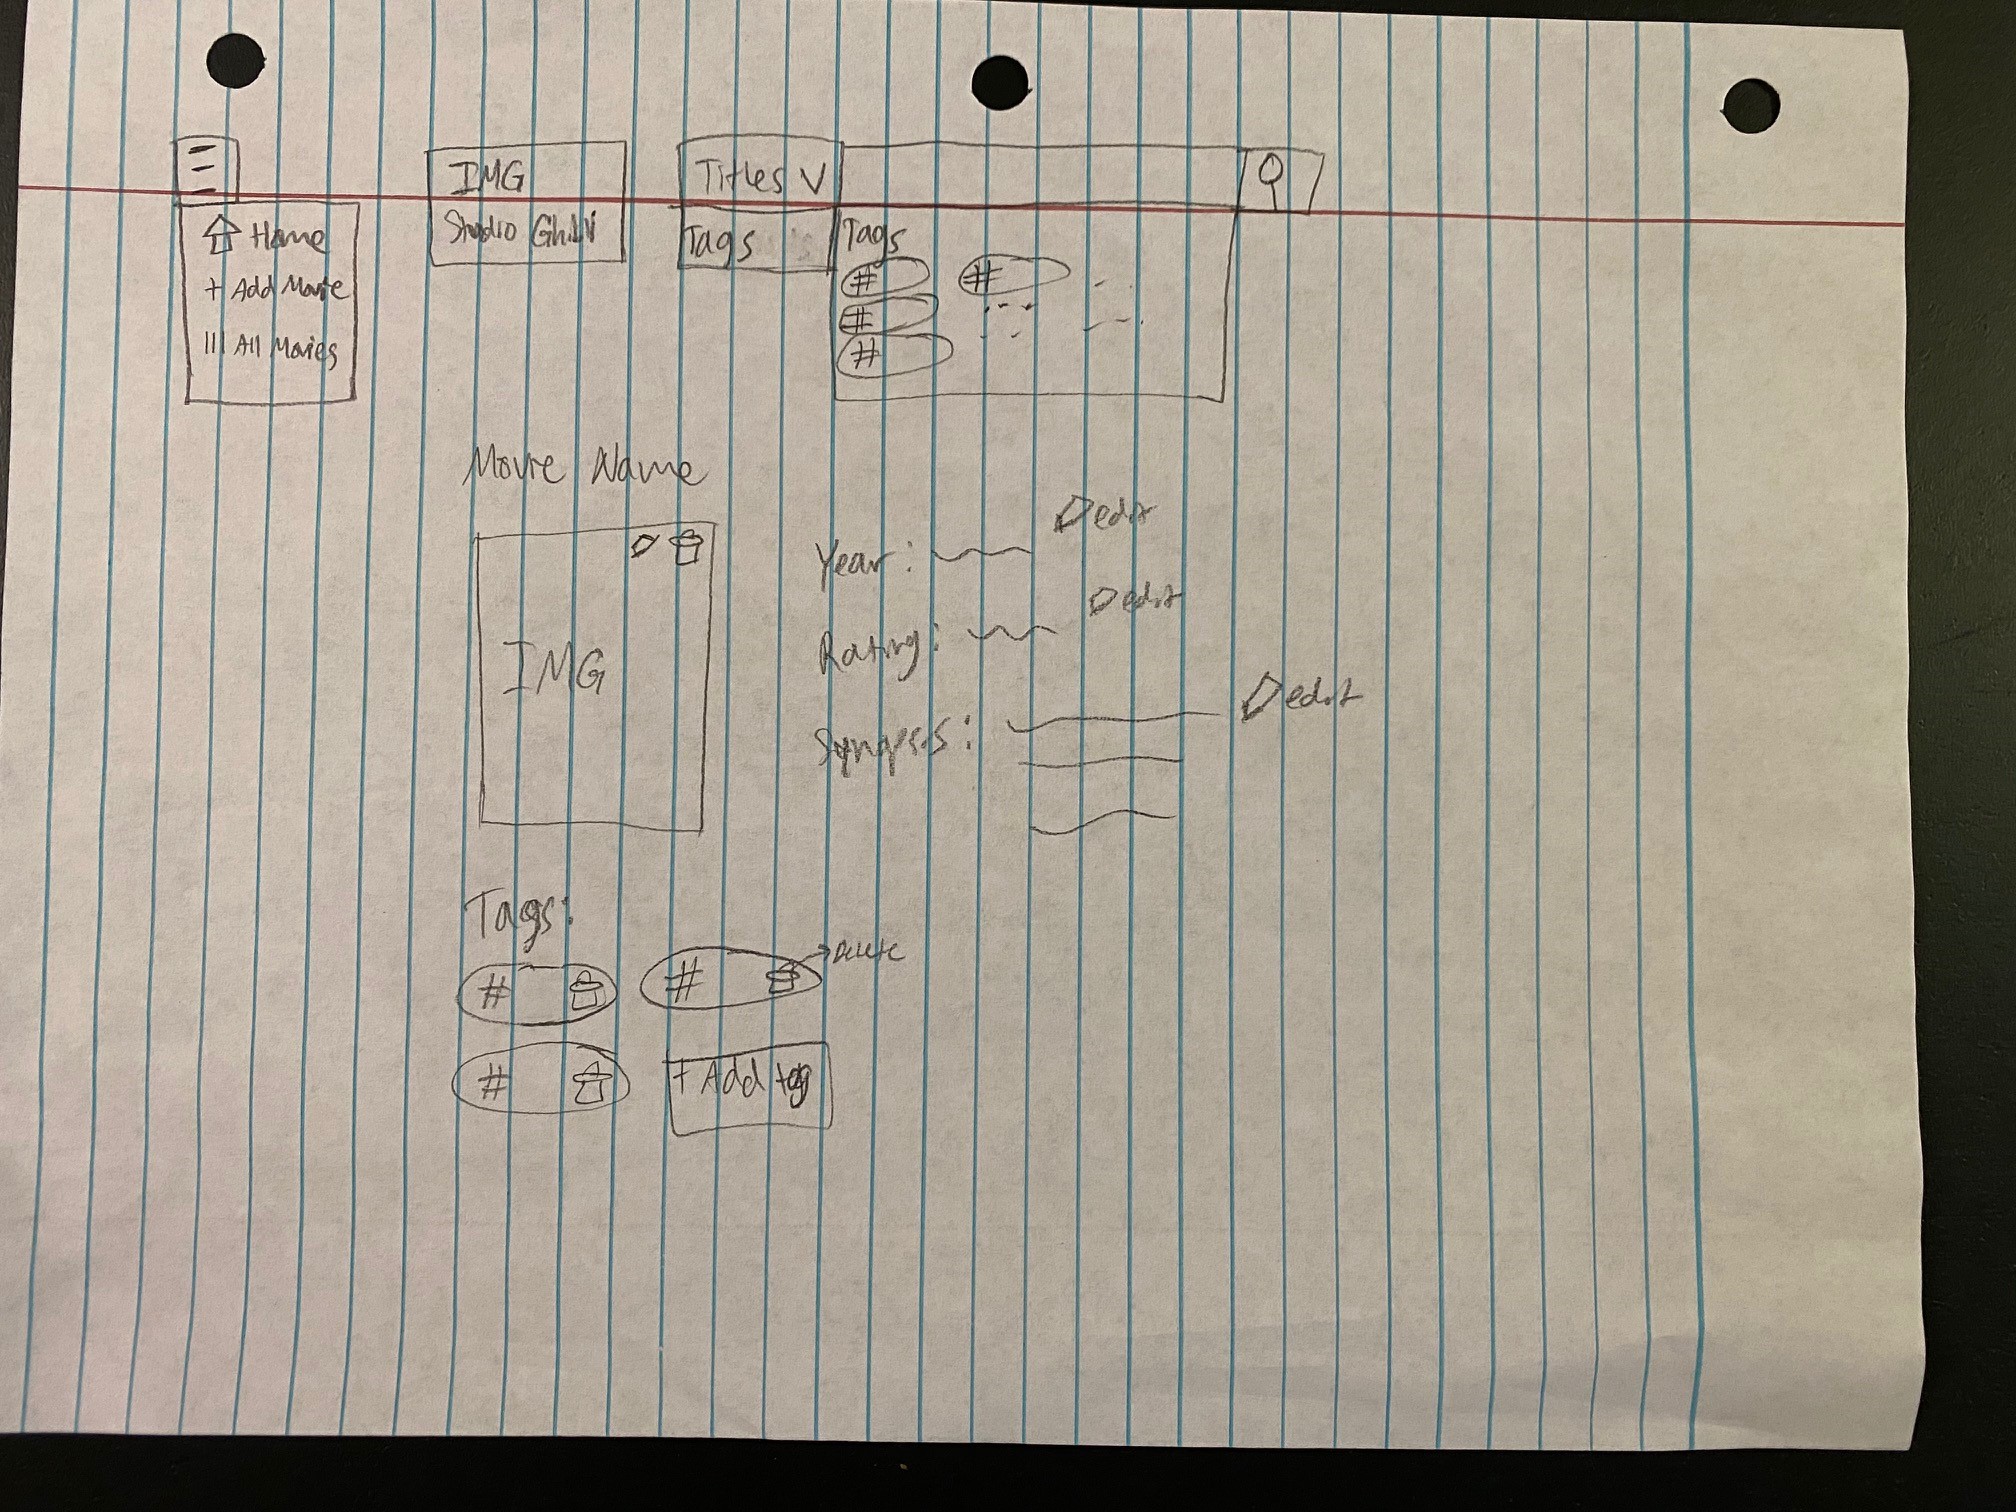 Home
+ Add Movie
All Movies
IMG
Studio Ghibli
Titles V
Tags
Tags
#
#
#
#
Movie Name
IMG
edit
Year:
edit
Rating:
edit
Synopsis:
Tags:
#
#
Delete
#
+ Add tag